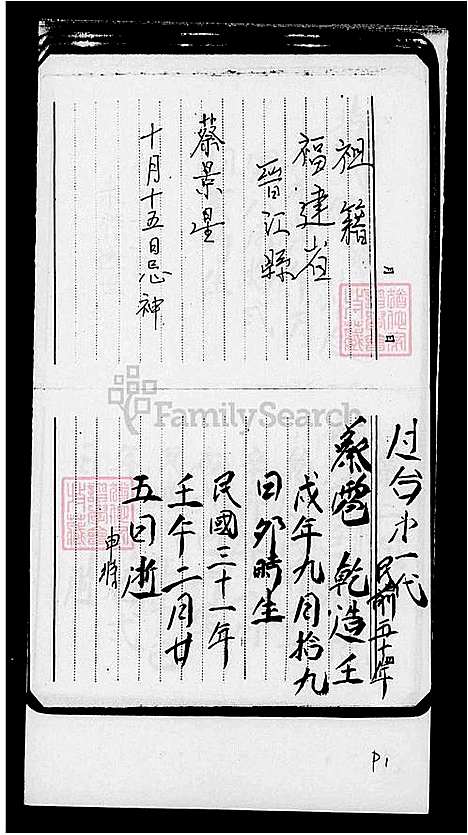 祖籍
福建省
晉江縣
蔡景星
十月十五日忌神
月
日
过台第一代
民前五十年
蔡 乾造壬
戌年九月拾九
日卯時生
民國三十一年
壬午二月廿
五日逝
申時
FamilySearch
P1